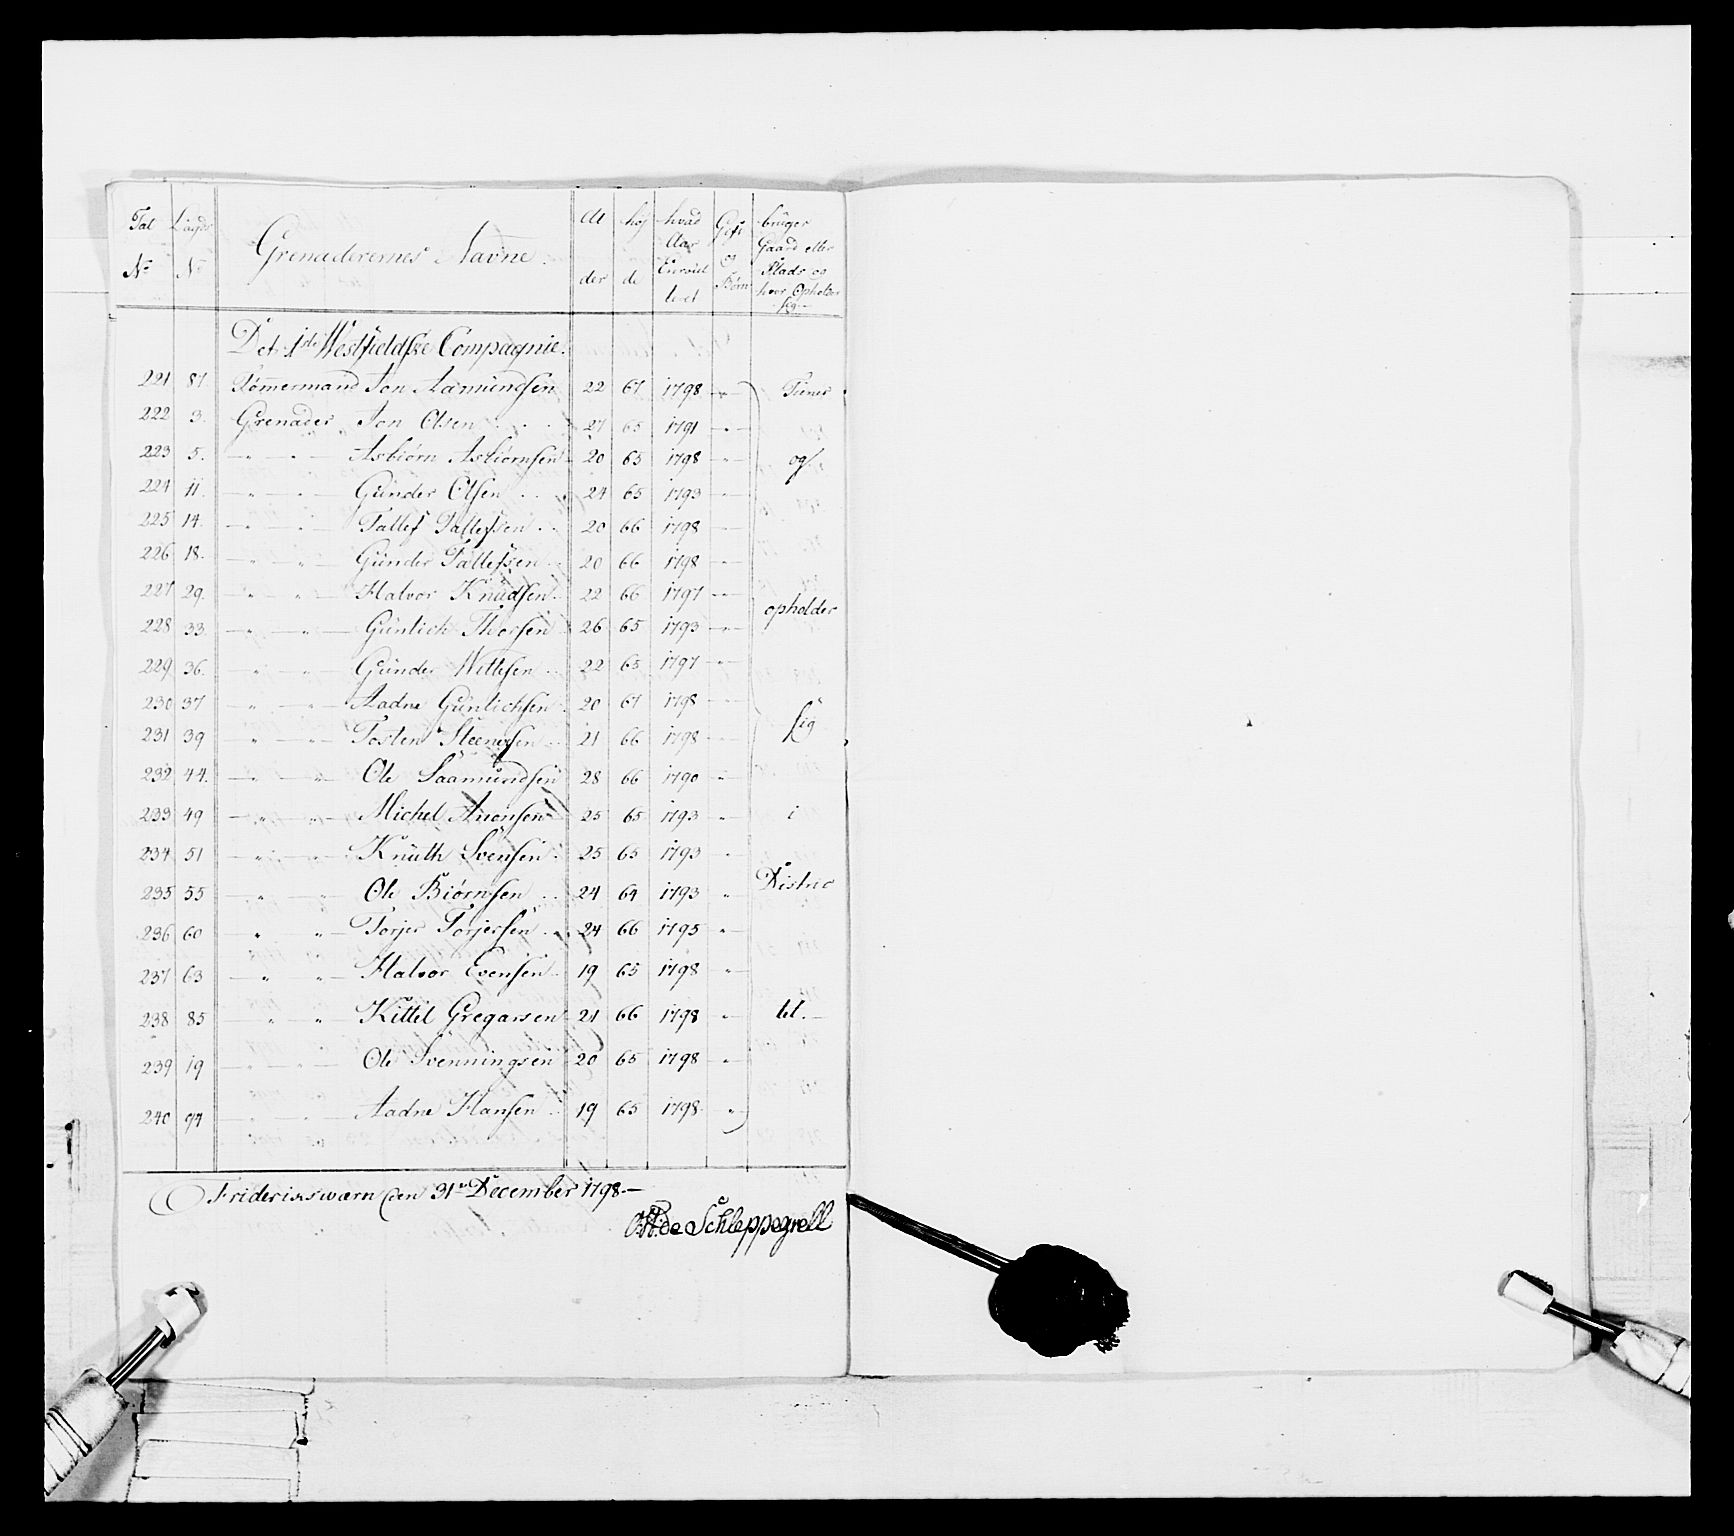 Tal No Lægds No Grenaderernes Navne. Al der høj de hvad Aar Enroul leret Gift og Børn bruger Gaard eller Plads og hvor Opholder sig
Det 1ste Westfieldske Compagnie.
221 87 Tømermand Jon Aamundsen 22 67 1798 " Tiener
222 3. Grenader Jon Olsen 27 65 1791 "
223 5. " " Asbiørn Asbiørnsen 20 65 1798 " og
224 11. " " Günder Olsen 24 65 1793 "
225 14. " " Tallef Tallefsen 20 66 1798 "
226 18. " " Günder Tallefsen 20 66 1798 "
227 29. " " Halvor Knüdsen 22 66 1797 " opholder
228 33. " " Günlich Thorsen 26 65 1793 "
229 36. " " Günder 22 65 1797 "
230 37 " " Aadne Günlichsen 20 67 1798 "
231 39 " " Tosten Steensen 21 66 1798 " sig
232 44. " " Ole Saamündsen 28 66 1790 "
233 49 " " Michel 25 65 1793 " i
234 51 " " Knüth Svensen 25 65 1793 "
235 55 " " Ole Biørnsen 24 64 1793 " Distric
236 60 " " Torjer Torjersen 24 66 1795 "
237 63 " " Halvor Evensen 19 65 1798 "
238 85 " " Kittel Gregarsen 21 66 1798 " tet.
239 19 " " Ole Svenningsen 20 65 1798 "
240 94 " " Aadne Hansen 19 65 1798 "
Frideriksværn den 31te December 1798.
de Schleppegrell